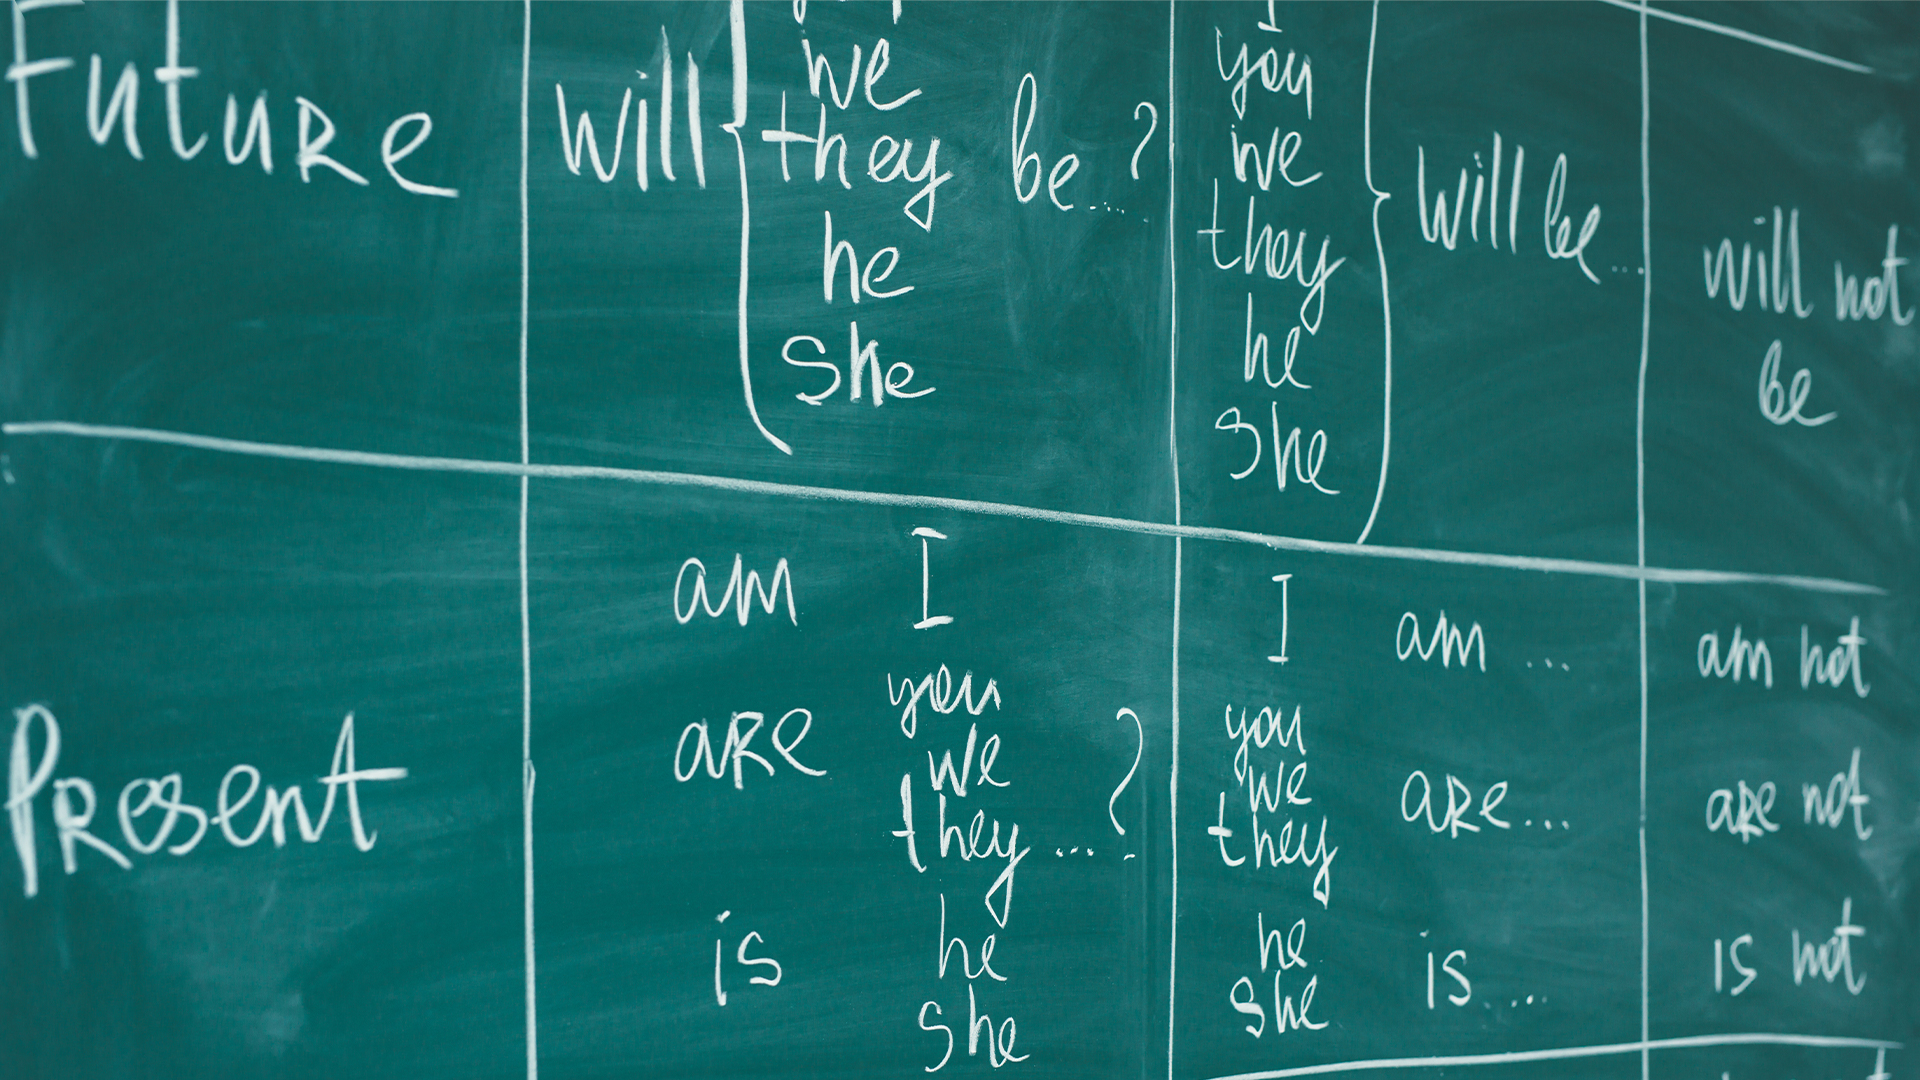 Future
will
we
they
he
she
be....?
I
you
we
they
he
she
will be...
will not
be
Present
am I
are
you
we
they ....?
is
he
she
I am ...
you
we
they
are...
he
she
is....
am not
are not
is not